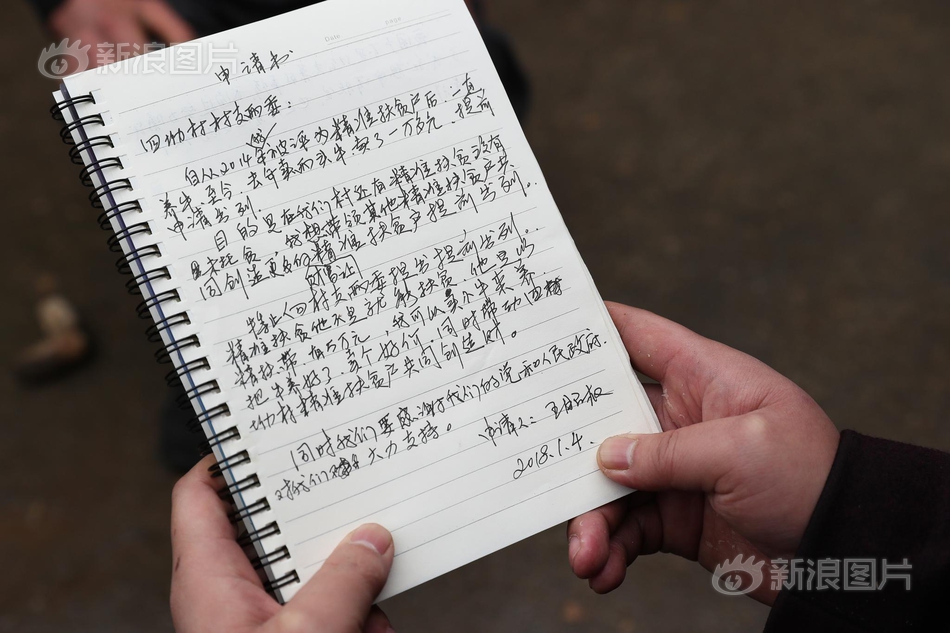 新浪图片
Date
申请书
四功村村支两委：
自从2014年被评为精准扶贫户后，一直
养牛至今，去年卖两头牛，卖了一万多元，提前
申请出列。
目的是在我们村还有精准扶贫没有
脱贫，我想带领其他精准扶贫户共
同创造更多的精准扶贫户提前出列。
财富让
特此向村支两委提出提前出列。
精准扶贫他不是说，能扶贫，他是以
精扶带，有5万元，我可以买个牛来养
把牛养好了，卖个好价，同时带动四
功村精准扶贫户共同创造财。
同时我们要感谢我们的党和人民政府．
对我们大力支持。
申请人：王
2018.1.4.
新浪图片